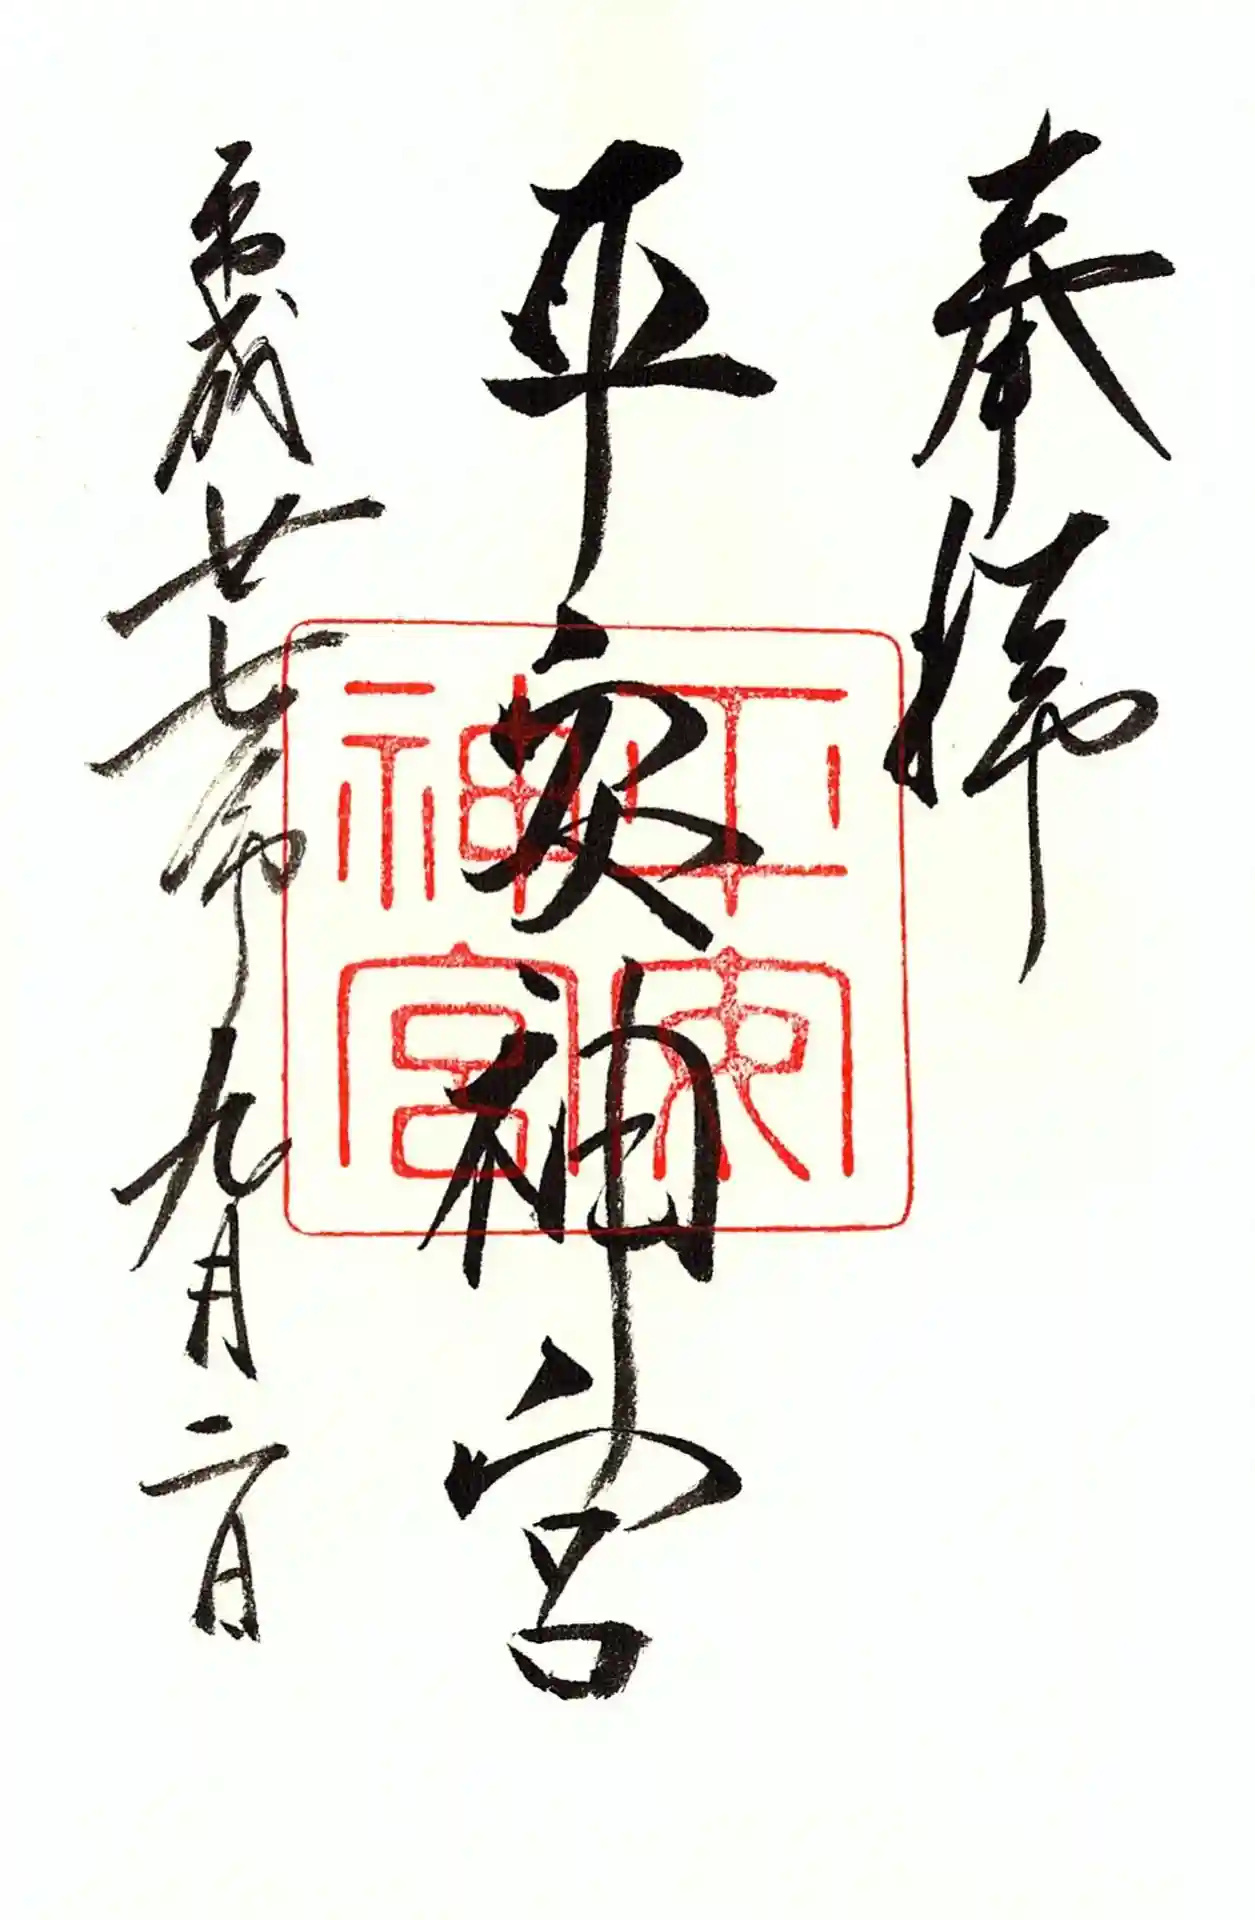 奉拝
平安神宮
平安神宮
平成廿七年九月二日